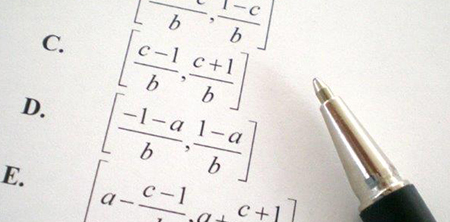 [ c/b, 1-c/b ]
C. [ c-1/b, c+1/b ]
D. [ -1-a/b, 1-a/b ]
E. [ a- c-1/b, a+ c+1 ]